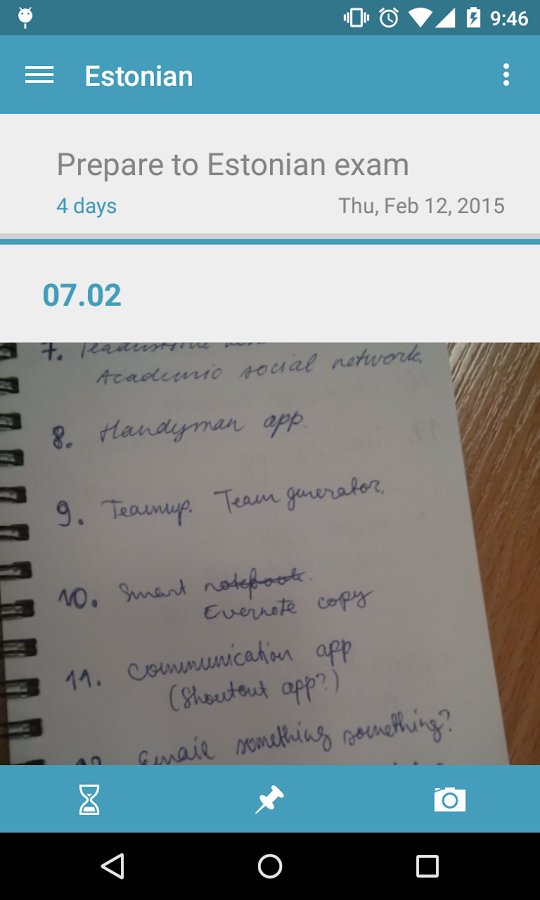 9:46
Estonian
Prepare to Estonian exam
4 days Thu, Feb 12, 2015
07.02
7.
Academic social network.
8. Handyman app.
9. Teamup. Team generator.
10. Smart notebook.
Evernote copy
11. Communication app
(Shoutout app?)
Email something something?